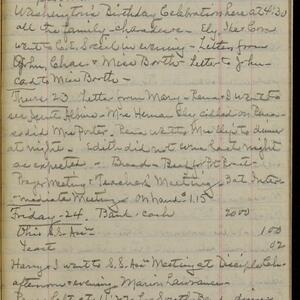 Washington's Birthday Celebration here at 4:30
all the family
went to C.E. Social in evening - Letters from
John, Chas + Miss Borth - Letter to John
card to Miss Borth -
Thurs 23 Letter from Mary - Rena + I went to
see Aunt - Mrs Herman Ely called on Rena
also did Mrs Porter - Rena went to Mrs Ely's to dinner
at night - Edith did not come last night
as expected - Bread - Beef
Prayer Meeting + Teacher's Meeting - 3 at Inter-
mediate Meeting - on hand 1.15
Friday - 24. Bank cash 2000
Ohio S.S. Ass'n 100
Yeast 02
Harry + I went to S.S. Ass'n Meeting at Disciple Ch -
afternoon + evening. Marion Lawrance -